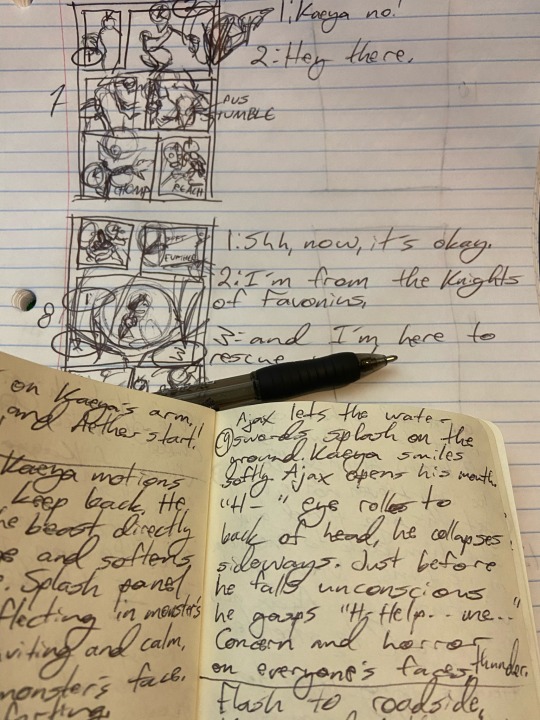 1: Kaeya no!
2: Hey there.
7
PUS
TUMBLE
CHOMP
REACH
1: Shh, now, it's okay.
FURTHER
2: I'm from the Knights
of Favonius,
8
3: and I'm here to
rescue
on Kaeya's arm.
and Aether start.
Kaeya motions
keep back. He
beast directly
and softens
Splash panel
flecting in monster's
viting and calm,
monster's face.
Ajax lets the wate-
9 swords splash on the
ground. Kaeya smiles
softly. Ajax opens his mouth.
"H-" eye rolls to
back of head, he collapses
sideways. Just before
he falls unconscious
he gasps "H-Help... me..."
Concern and horror
on everyone's faces, thunder.
Flash to roadside,